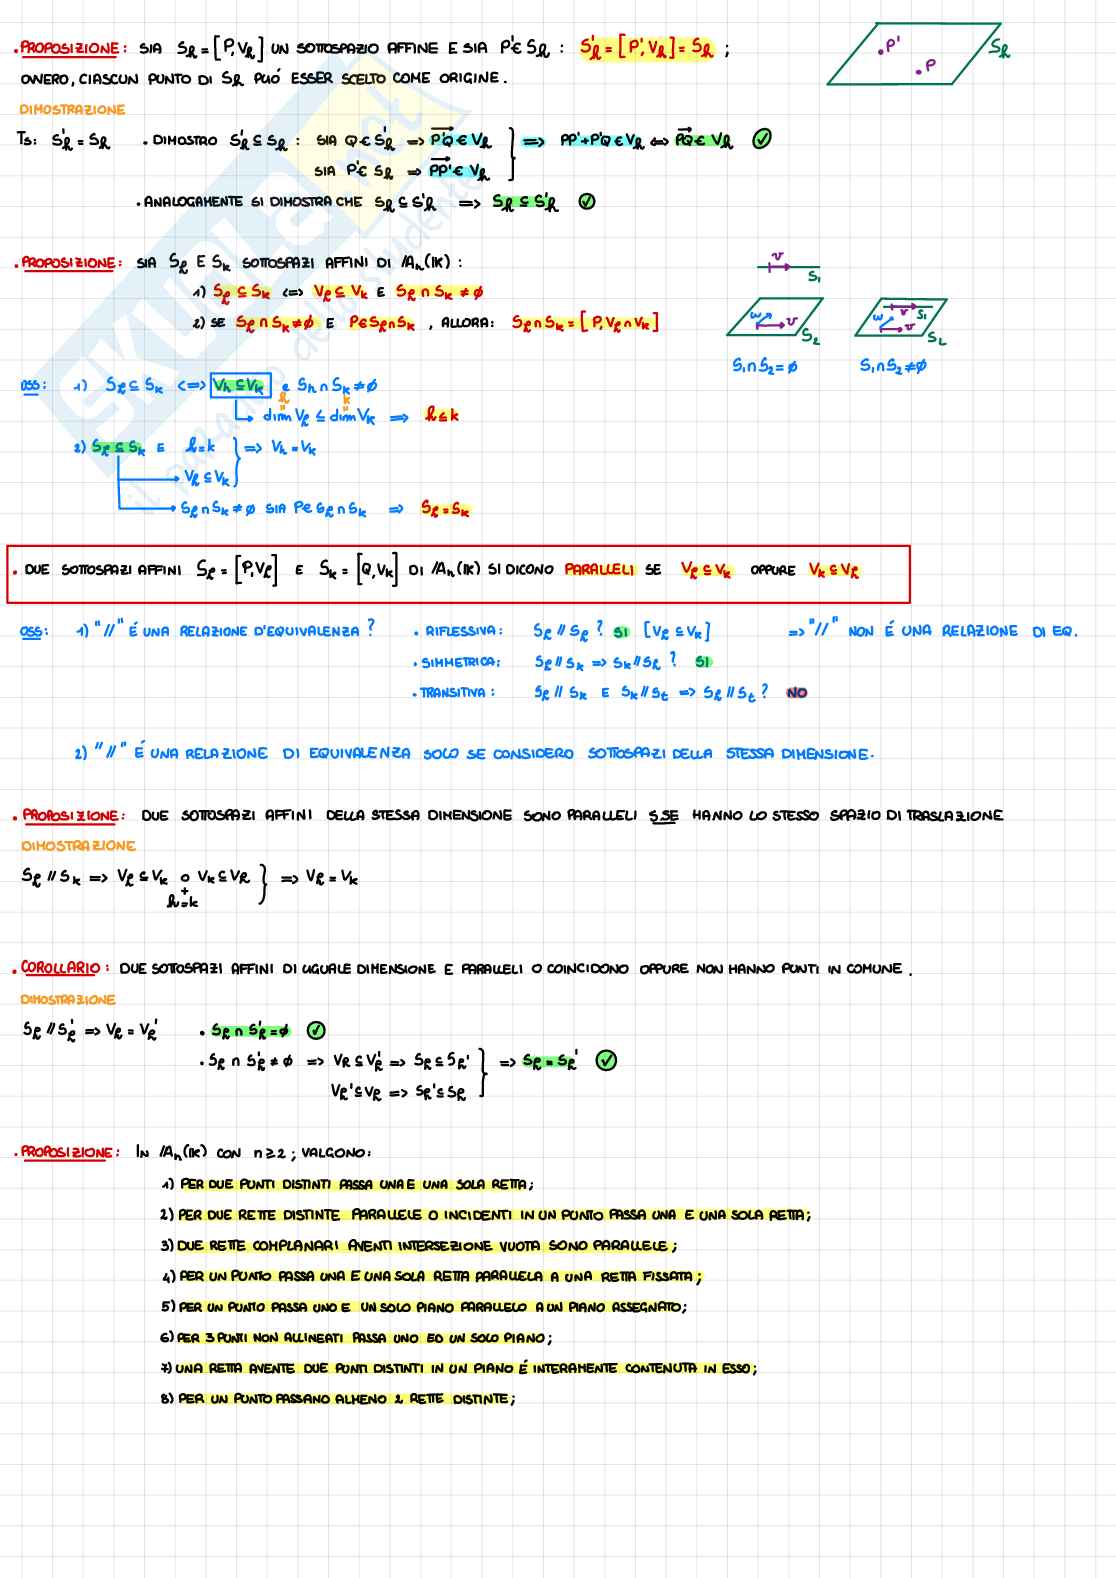 . PROPOSIZIONE: SIA Sₕ = [P, Vₕ] UN SOTTOSPAZIO AFFINE E SIA P'∈ Sₕ : S'ₕ = [P', Vₕ] = Sₕ ;
P' P Sₕ
OVVERO, CIASCUN PUNTO DI Sₕ PUÓ ESSER SCELTO COME ORIGINE.
DIMOSTRAZIONE
Ts: S'ₕ = Sₕ . DIMOSTRO S'ₕ ⊆ Sₕ : SIA Q ∈ S'ₕ => P'Q ∈ Vₕ } => PP' + P'Q ∈ Vₕ <=> PQ ∈ Vₕ ✓
SIA P'∈ Sₕ => PP' ∈ Vₕ
. ANALOGAMENTE SI DIMOSTRA CHE Sₕ ⊆ S'ₕ => Sₕ ⊆ S'ₕ ✓
. PROPOSIZIONE: SIA Sₕ E Sₖ SOTTOSPAZI AFFINI DI /Aₙ(IK) :
v S₁
1) Sₕ ⊆ Sₖ <=> Vₕ ⊆ Vₖ E Sₕ ∩ Sₖ ≠ ∅
2) SE Sₕ ∩ Sₖ ≠ ∅ E P ∈ Sₕ ∩ Sₖ , ALLORA: Sₕ ∩ Sₖ = [P, Vₕ ∩ Vₖ]
w v S₂ w v S₁ v S₂
S₁ ∩ S₂ = ∅ S₁ ∩ S₂ ≠ ∅
OSS: 1) Sₕ ⊆ Sₖ <=> Vₕ ⊆ Vₖ e Sₕ ∩ Sₖ ≠ ∅
h k
" "
dim Vₕ ≤ dim Vₖ => h ≤ k
2) Sₕ ⊆ Sₖ E h = k } => Vₕ = Vₖ
Vₕ ⊆ Vₖ
Sₕ ∩ Sₖ ≠ ∅ SIA P ∈ Sₕ ∩ Sₖ => Sₕ = Sₖ
. DUE SOTTOSPAZI AFFINI Sₕ = [P, Vₕ] E Sₖ = [Q, Vₖ] DI /Aₙ(IK) SI DICONO PARALLELI SE Vₕ ⊆ Vₖ OPPURE Vₖ ⊆ Vₕ
OSS: 1) "//" É UNA RELAZIONE D'EQUIVALENZA ? . RIFLESSIVA: Sₕ // Sₕ ? SI [Vₕ ⊆ Vₖ] => "//" NON É UNA RELAZIONE DI EQ.
. SIMMETRICA: Sₕ // Sₖ => Sₖ // Sₕ ? SI
. TRANSITIVA: Sₕ // Sₖ E Sₖ // Sₜ => Sₕ // Sₜ ? NO
2) "//" É UNA RELAZIONE DI EQUIVALENZA SOLO SE CONSIDERO SOTTOSPAZI DELLA STESSA DIMENSIONE.
. PROPOSIZIONE: DUE SOTTOSPAZI AFFINI DELLA STESSA DIMENSIONE SONO PARALLELI S.SE HANNO LO STESSO SPAZIO DI TRASLAZIONE
DIMOSTRAZIONE
Sₕ // Sₖ => Vₕ ⊆ Vₖ o Vₖ ⊆ Vₕ } => Vₕ = Vₖ
+
h = k
. COROLLARIO: DUE SOTTOSPAZI AFFINI DI UGUALE DIMENSIONE E PARALLELI O COINCIDONO OPPURE NON HANNO PUNTI IN COMUNE .
DIMOSTRAZIONE
Sₕ // S'ₕ => Vₕ = Vₕ' . Sₕ ∩ S'ₕ = ∅ ✓
. Sₕ ∩ S'ₕ ≠ ∅ => Vₕ ⊆ V'ₕ => Sₕ ⊆ Sₕ' } => Sₕ = Sₕ' ✓
Vₕ' ⊆ Vₕ => Sₕ' ⊆ Sₕ
. PROPOSIZIONE: IN /Aₙ(IK) CON n ≥ 2 ; VALGONO:
1) PER DUE PUNTI DISTINTI PASSA UNA E UNA SOLA RETTA;
2) PER DUE RETTE DISTINTE PARALLELE O INCIDENTI IN UN PUNTO PASSA UNA E UNA SOLA RETTA;
3) DUE RETTE COMPLANARI AVENTI INTERSEZIONE VUOTA SONO PARALLELE;
4) PER UN PUNTO PASSA UNA E UNA SOLA RETTA PARALLELA A UNA RETTA FISSATA;
5) PER UN PUNTO PASSA UNO E UN SOLO PIANO PARALLELO A UN PIANO ASSEGNATO;
6) PER 3 PUNTI NON ALLINEATI PASSA UNO ED UN SOLO PIANO;
7) UNA RETTA AVENTE DUE PUNTI DISTINTI IN UN PIANO É INTERAMENTE CONTENUTA IN ESSO;
8) PER UN PUNTO PASSANO ALMENO 2 RETTE DISTINTE;